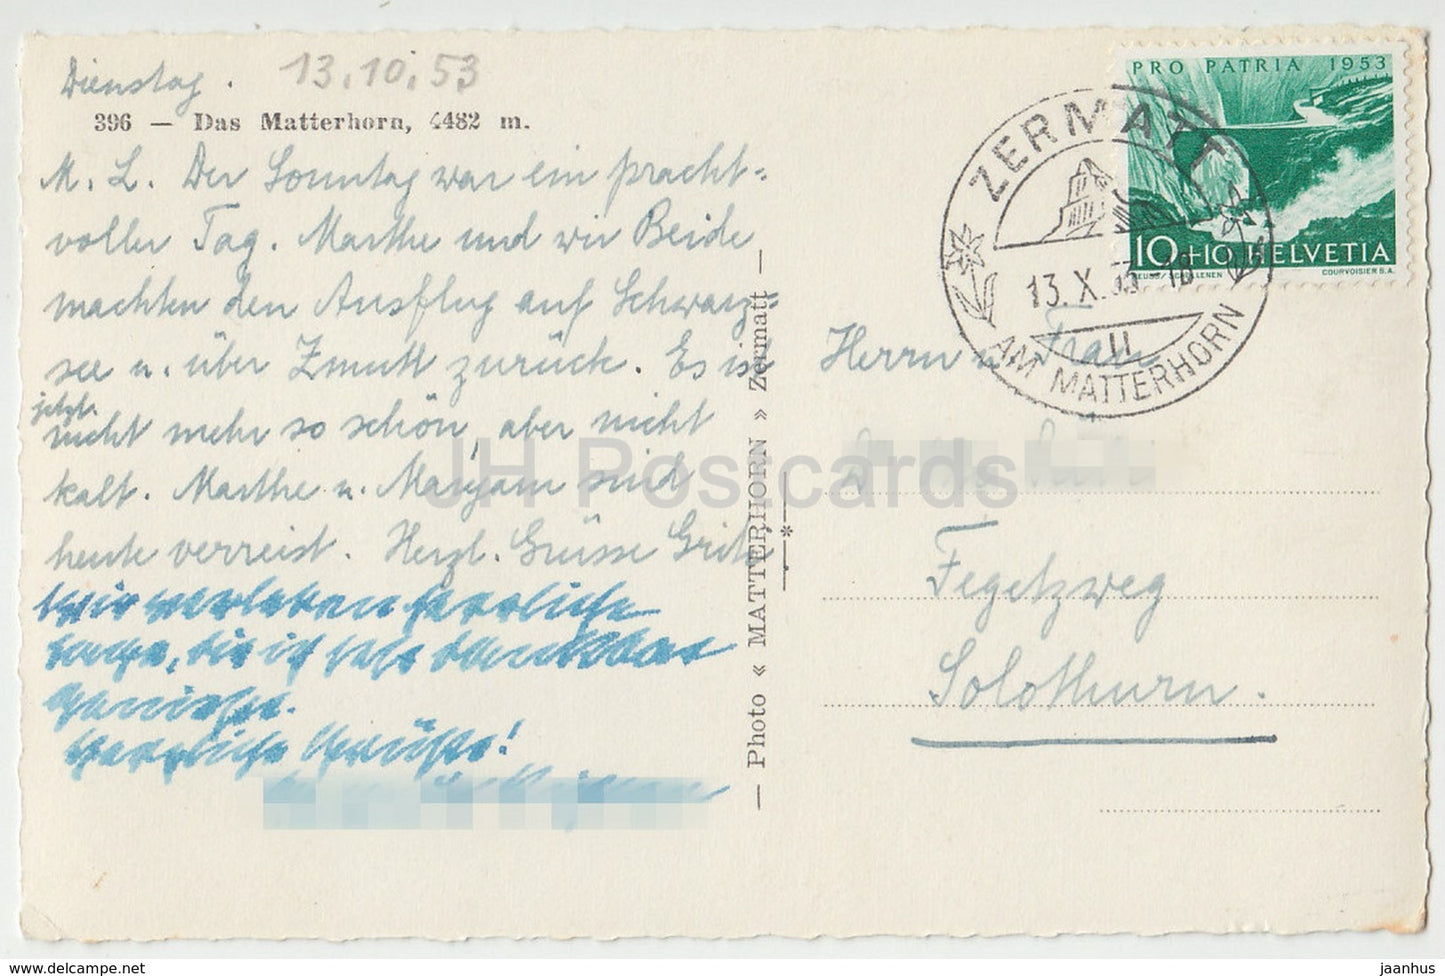 Dienstag. 13.10.53
396 — Das Matterhorn, 4482 m.
M. L. Der Sonntag war ein pracht=
voller Tag. Marthe und wir Beide
machten den Ausflug auf Schwarz=
see u. über Zmutt zurück. Es ist
jetzt
nicht mehr so schön, aber nicht
kalt. Marthe u. Maryam sind
heute verreist. Herzl. Grüsse Grity
Wir verleben herrliche
Tage, die ich sehr dankbar
geniesse.
Herzliche Grüsse!
— Photo « MATTERHORN » Zermatt —
PRO PATRIA 1953
10+10 HELVETIA
REUSS / SCHÖLLENEN COURVOISIER S.A.
ZERMATT
13. X. 53-18
11
AM MATTERHORN
Herrn u. Frau
Fegetzweg
Solothurn.
JH Postcards
www.delcampe.net
jaanhus